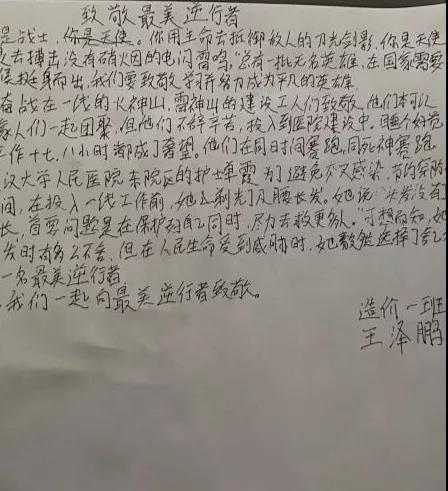 致敬最美逆行者
是战士,你是天使。你用生命去抵御敌人的刀光剑影,你是天使
去搏击没有硝烟的电闪雷鸣"总有一批无名英雄,在国家需要
候挺身而出,我们要致敬学习并努力成为平凡的英雄.
奋战在一线的火神山,雷神山的建设工人们致敬,他们本可以
家人们一起团聚,但他们不辞辛苦,投入到医院建设中,睡个好觉
工作十七、八小时都成了奢望。他们在同时间赛跑,同死神赛跑
汉大学人民医院东院区的护士单霞,为了避免交叉感染,节约穿防
间,在投入一线工作前,她剃光了及腰长发。她说"头发没有
长,首要问题是在保护好自己同时,尽力去救更多人。"可想而知,她
发时有多么不舍,但在人民生命受到威胁时,她毅然选择了
一名最美逆行者
我们一起向最美逆行者致敬。
造价一班
王泽鹏